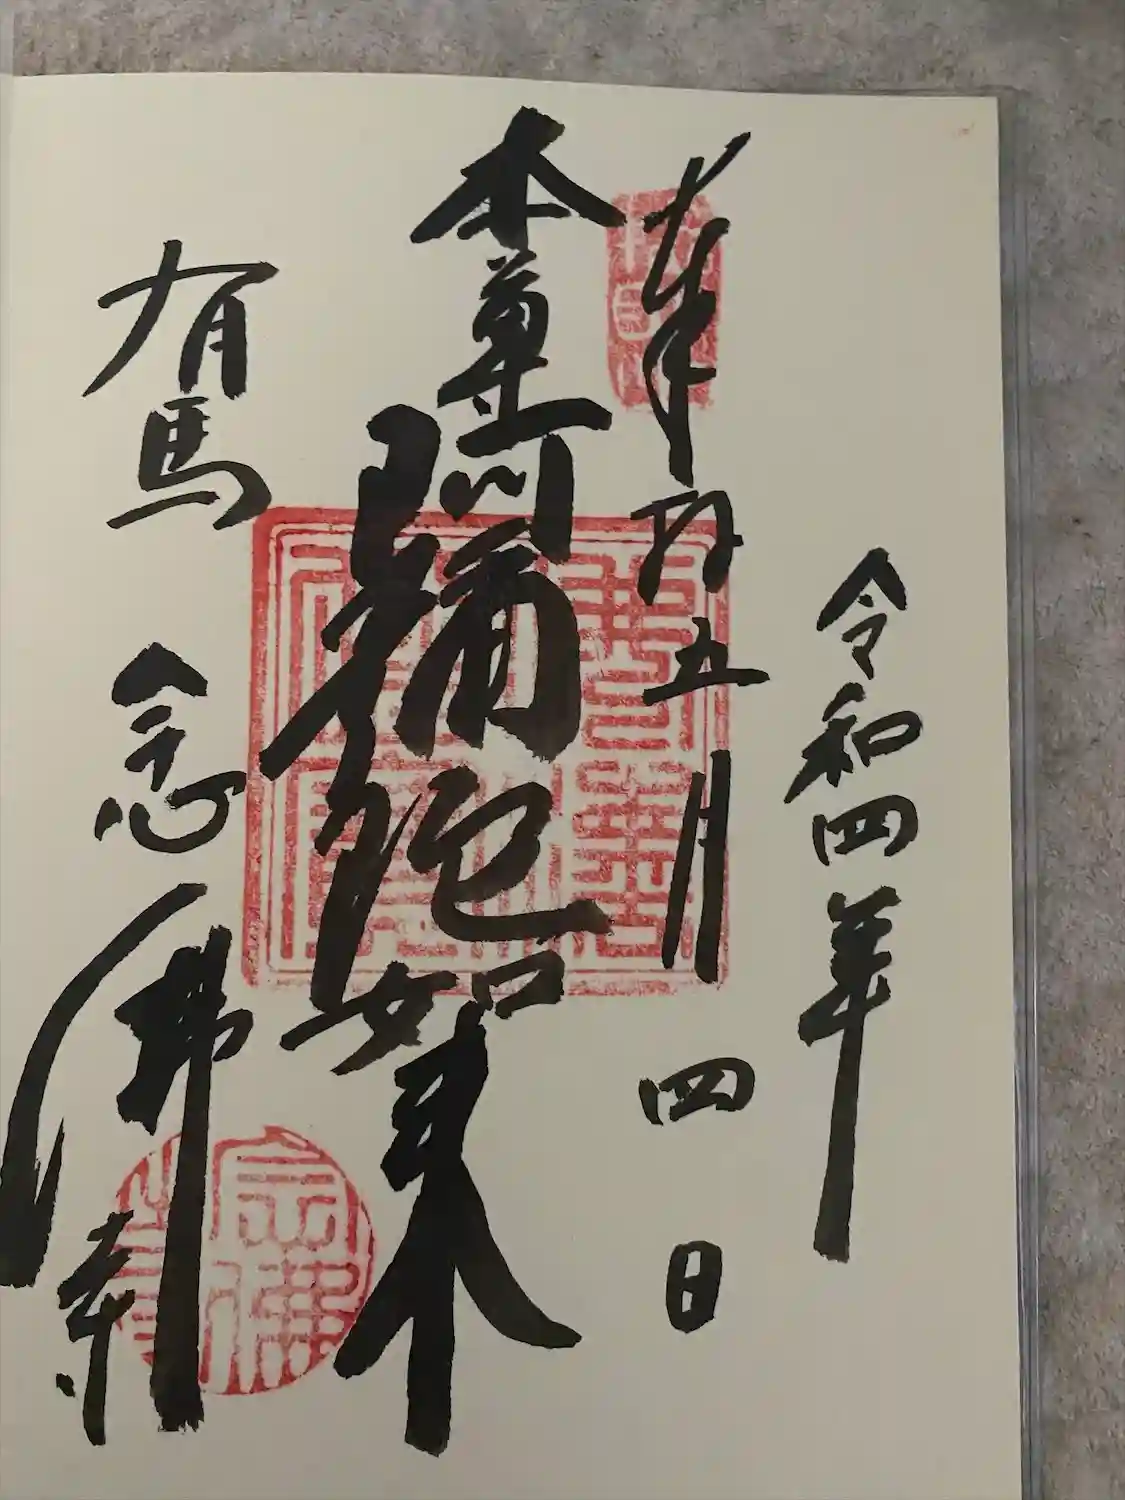 令和四年
奉拝 五月四日
本尊 阿彌陀如来
有馬 念佛寺